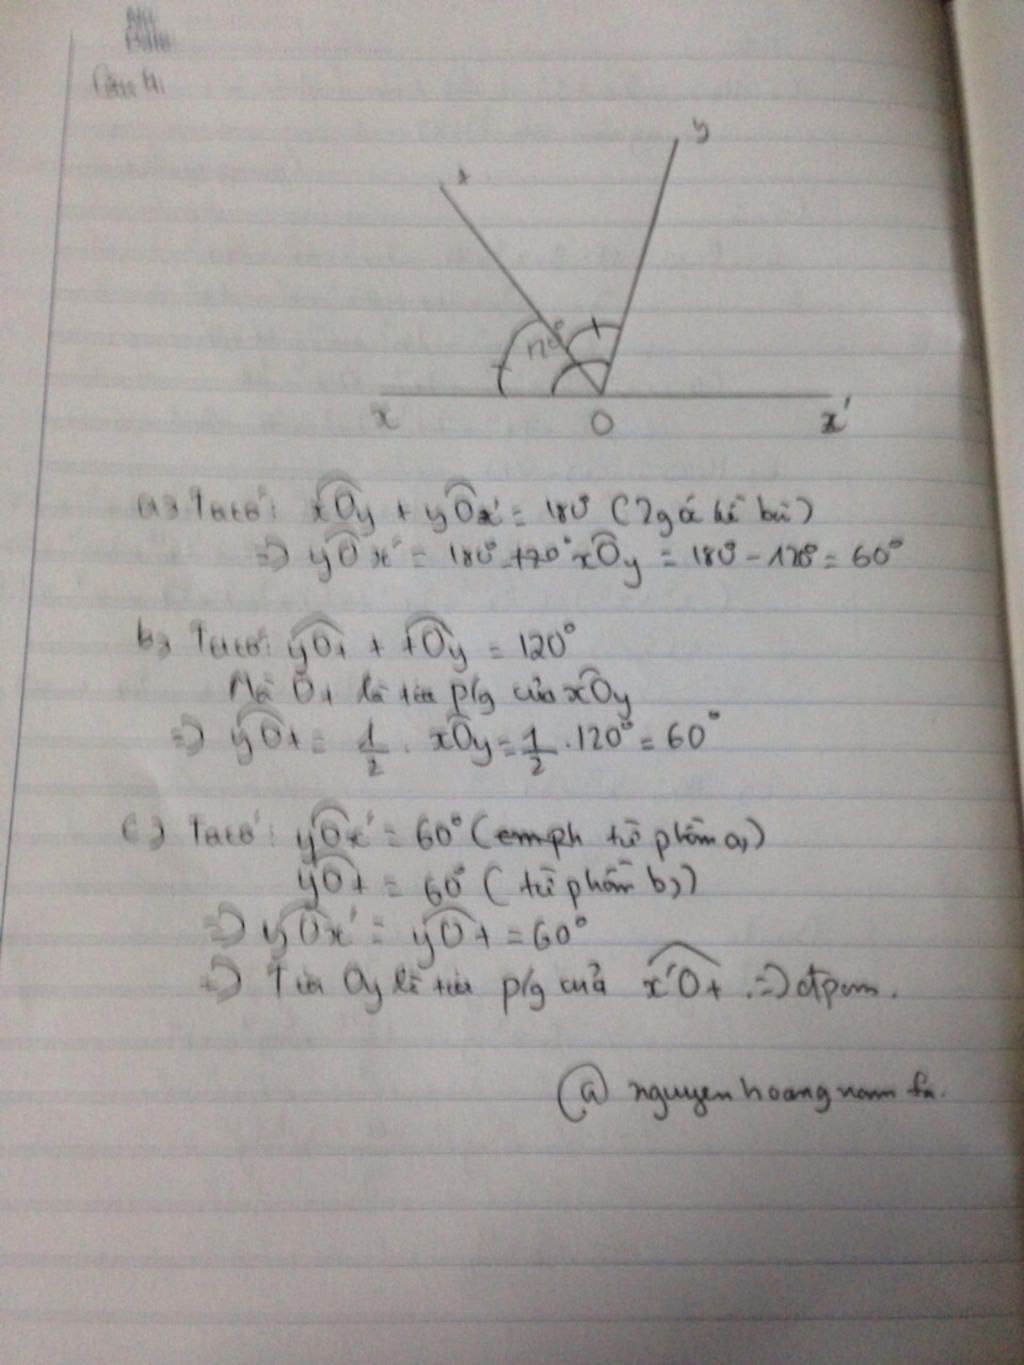 Câu 4:
y
t
120°
x
O
x'
a, Ta có: xOy + yOx' = 180° (2 góc kề bù)
=> yOx' = 180° - xOy = 180° - 120° = 60°
b, Ta có: yOt + tOy = 120°
Mà Ot là tia p/g của xOy
=> yOt = 1/2 . xOy = 1/2 . 120° = 60°
c, Ta có: yOx' = 60° (cmph từ phần a,)
yOt = 60° (từ phần b,)
=> yOx' = yOt = 60°
=> Tia Oy là tia p/g của x'Ot => đpcm.
@ nguyenhoangnam